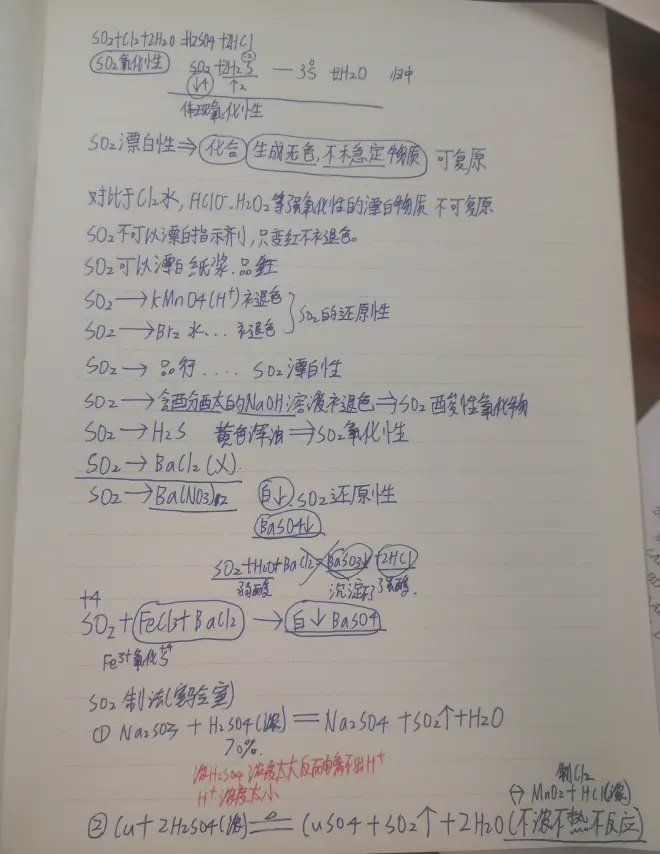 SO2+Cl2+2H2O=H2SO4+2HCl
SO2氧化性 SO2+2H2S — 3S +2H2O 归中
↓4 ↑2
体现氧化性
SO2漂白性⇒化合 生成无色,不稳定物质 可复原
对比于Cl2水,HClO.H2O2等强氧化性的漂白物质 不可复原
SO2不可以漂白指示剂,只变红不褪色。
SO2可以漂白纸浆.品红
SO2→KMnO4(H+)褪色
SO2的还原性
SO2→Br2水...褪色
SO2→品行.... SO2漂白性
SO2→含酉分酉太的NaOH溶液褪色⇒SO2酸性氧化物
SO2→H2S 黄色浑浊⇒SO2氧化性
SO2→BaCl2(X).
SO2→Ba(NO3)2 白↓.SO2还原性
BaSO4↓
SO2+H2O+BaCl2=BaSO3↓+2HCl
弱酸 沉淀 强酸.
+4
SO2+FeCl3+BaCl2→白↓BaSO4
Fe3+氧化S+4
SO2制法(实验室)
① Na2SO3 + H2SO4(浓)=Na2SO4 +SO2↑+H2O
70%.
浓H2SO4浓度太大反而电离不出H+
H+浓度太小
制Cl2
⇔MnO2+HCl(浓)
② Cu+2H2SO4(浓)=△=CuSO4+SO2↑+2H2O(不浓不热不反应)